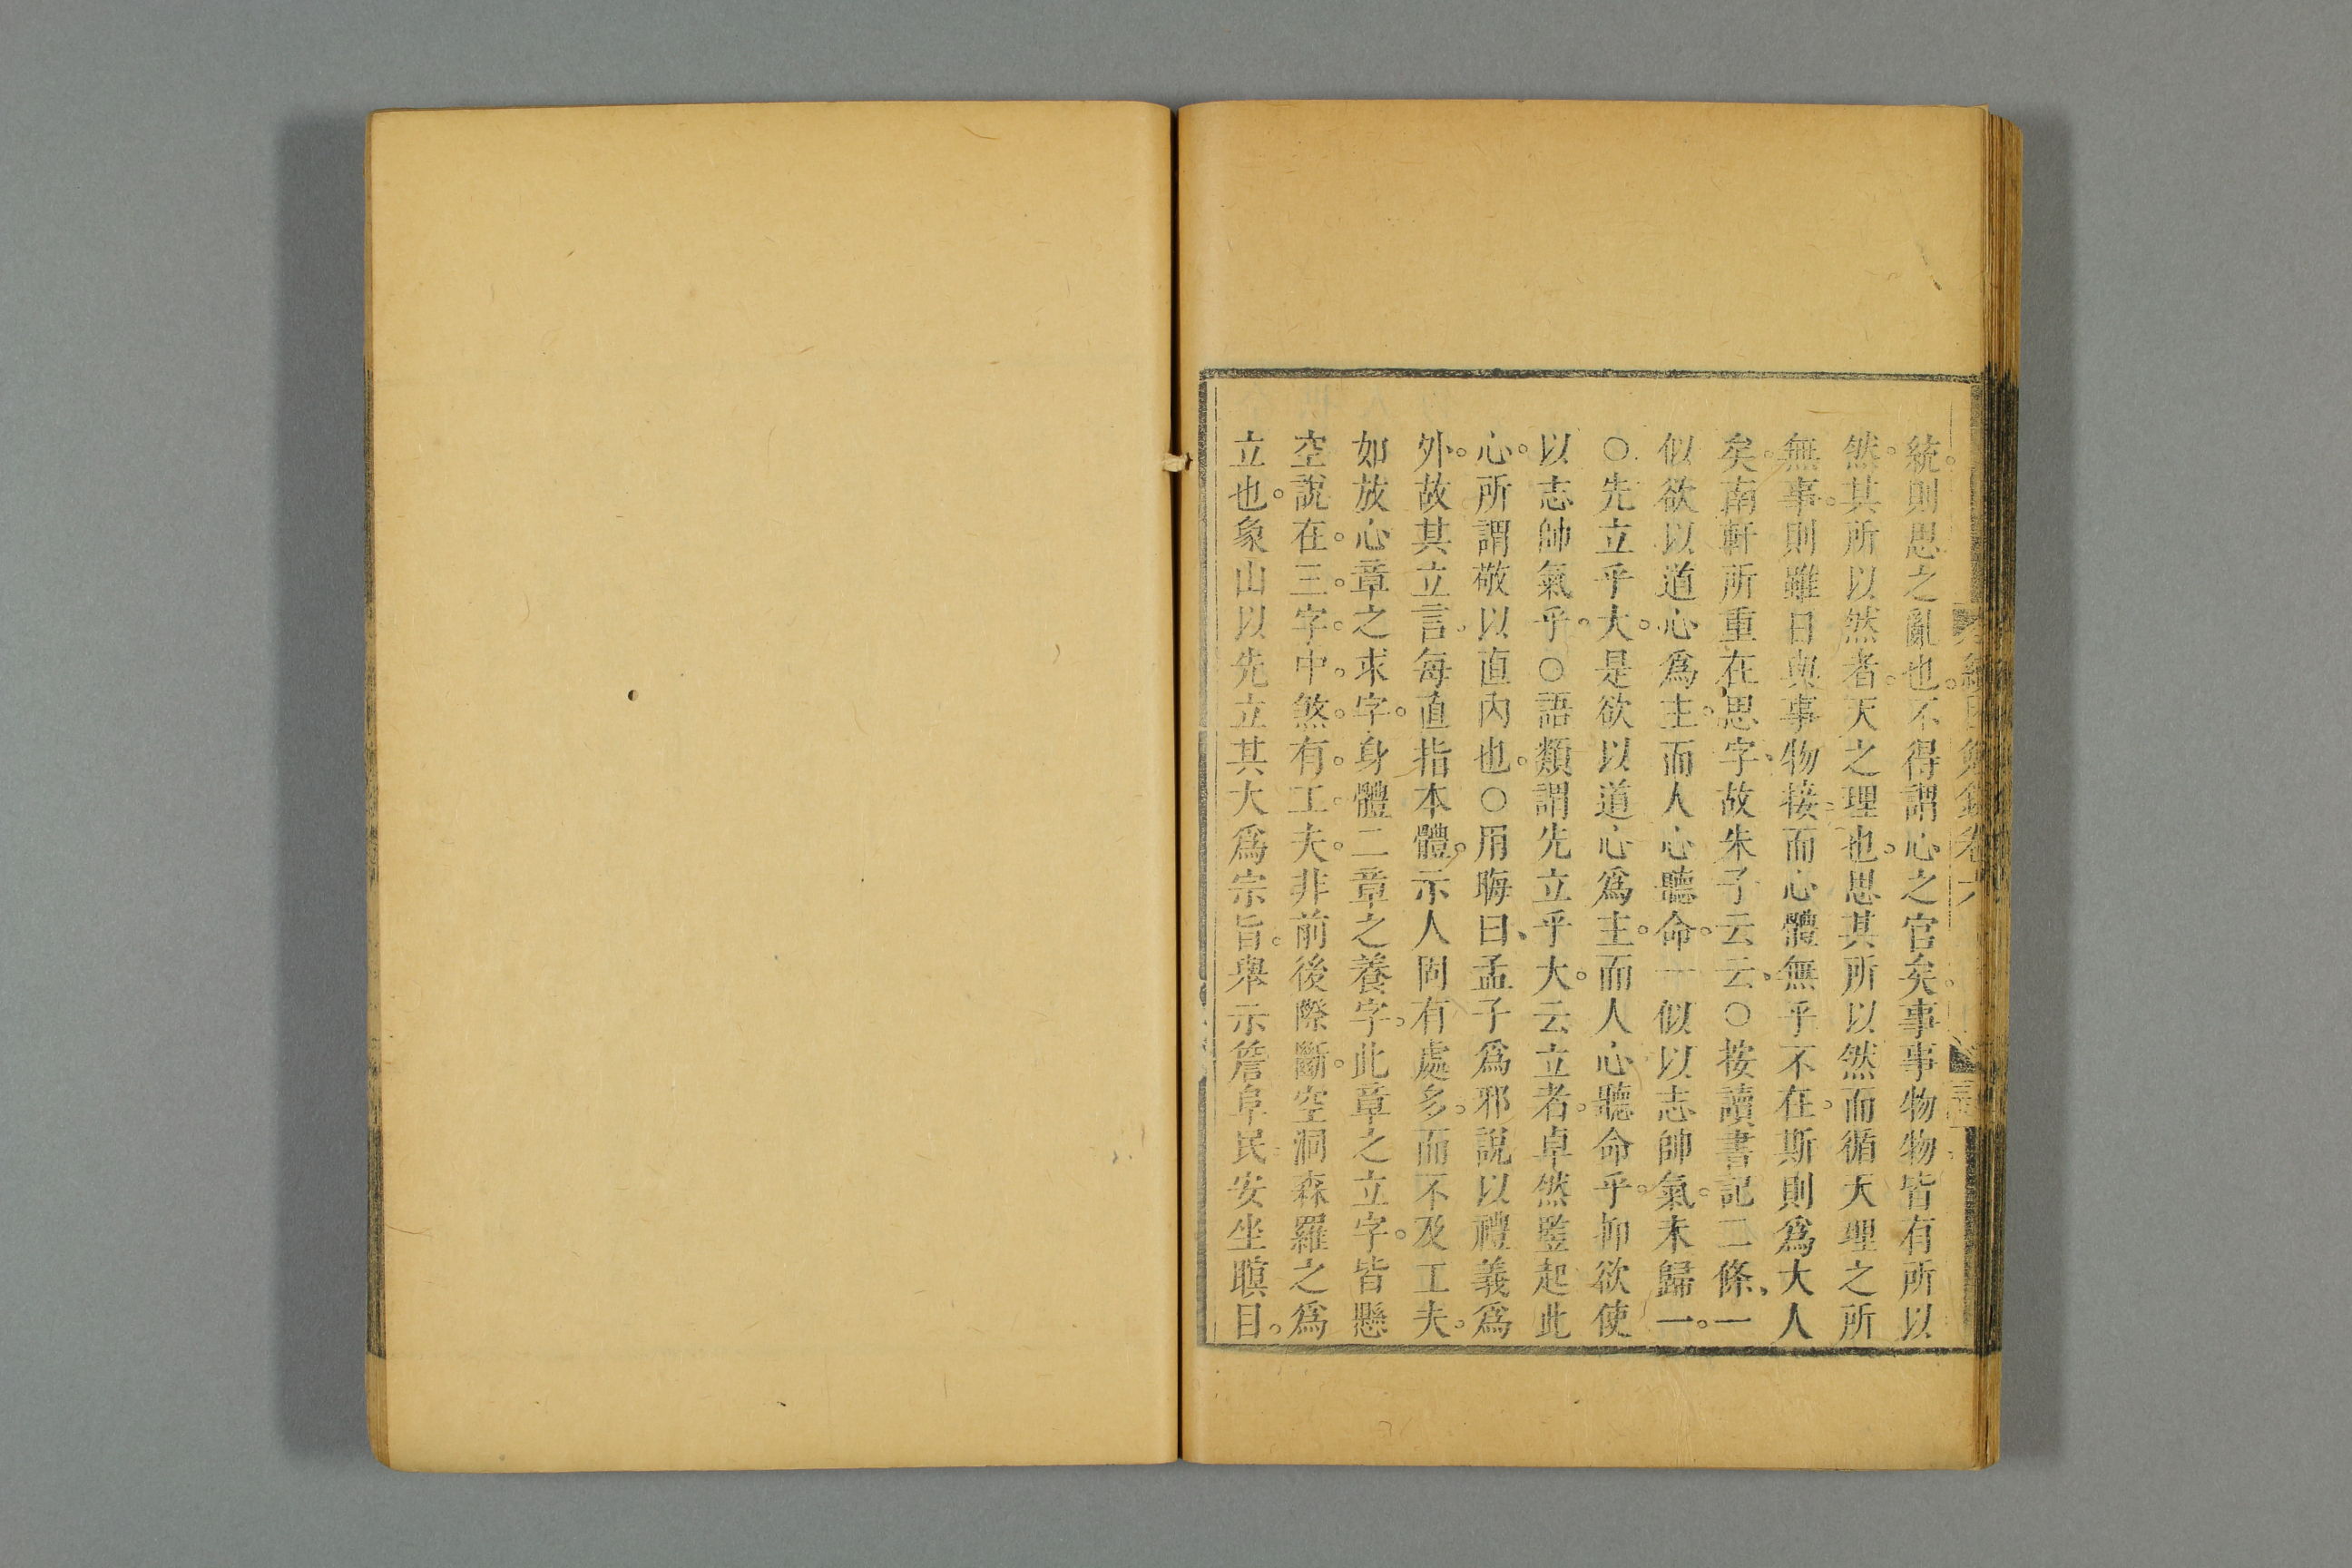 統。則思之亂也。不得謂心之官矣。事事物物皆有所以
然。其所以然者。天之理也。思其所以然而循天理之所
無事。則雖日與事物接。而心體無乎不在。斯則爲大人
矣。南軒所重在思字、故朱子云云、○按讀書記二條、一
似欲以道心爲主。而人心聽命。一似以志帥氣。未歸一。
○先立乎大。是欲以道心爲主。而人心聽命乎。抑欲使
以志帥氣乎。○語類謂先立乎大。云立者。卓然豎起此
心。所謂敬以直內也。○用晦曰、孟子爲邪說以禮義爲
外。故其立言。每直指本體。示人固有處多。而不及工夫。
如放心章之求字。身體二章之養字。此章之立字。皆懸
空說在。三。字。中。煞。有。工。夫。非前後際斷。空洞森羅之爲
立也。象山以先立其大爲宗旨。舉示詹阜民安坐瞑目。